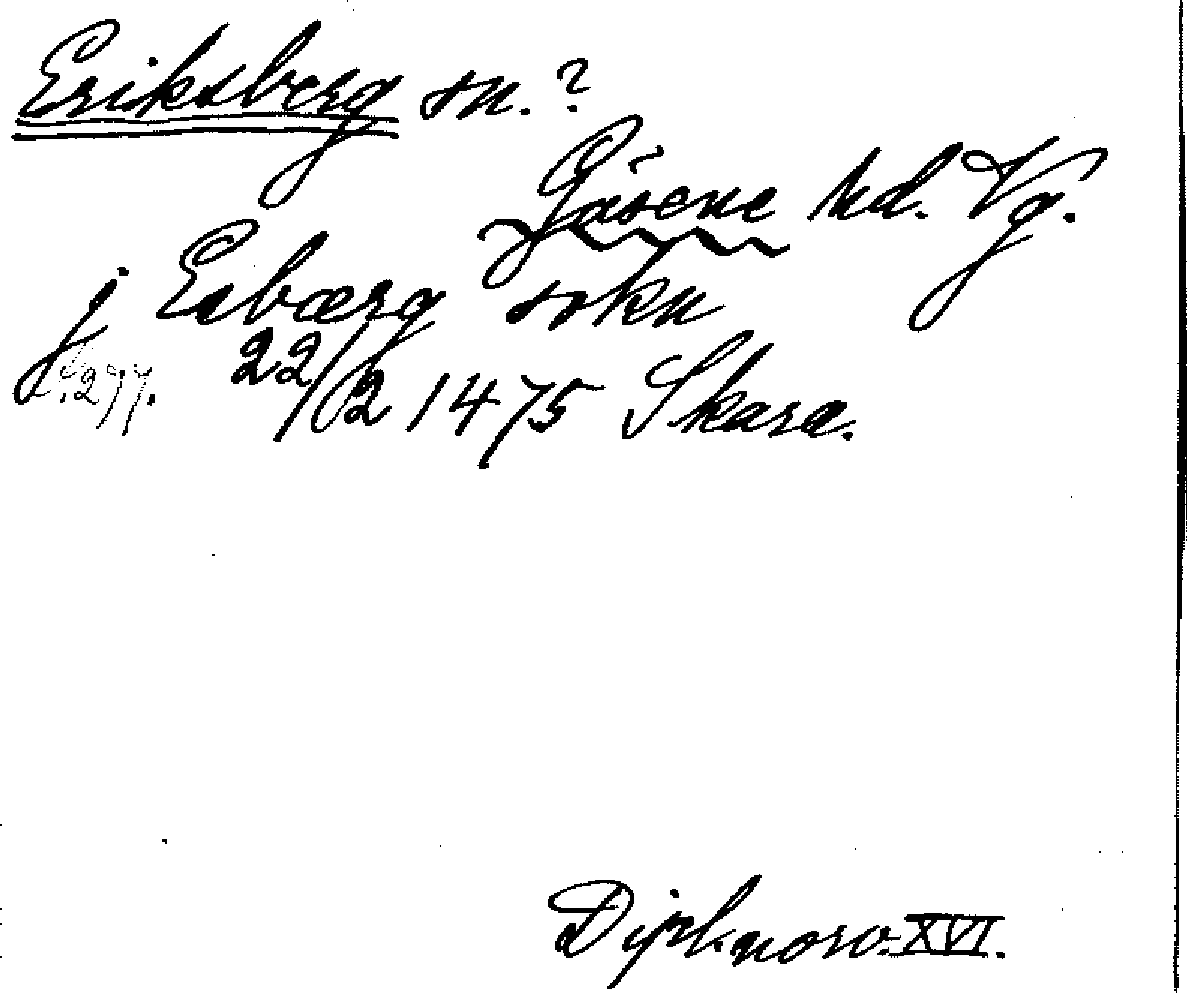 Eriksberg sn.?
Gäsene hd. Vg.
j Esbærg sokn
s. 297. 22/2 1475 Skara.
Dipl. norv. XVI.